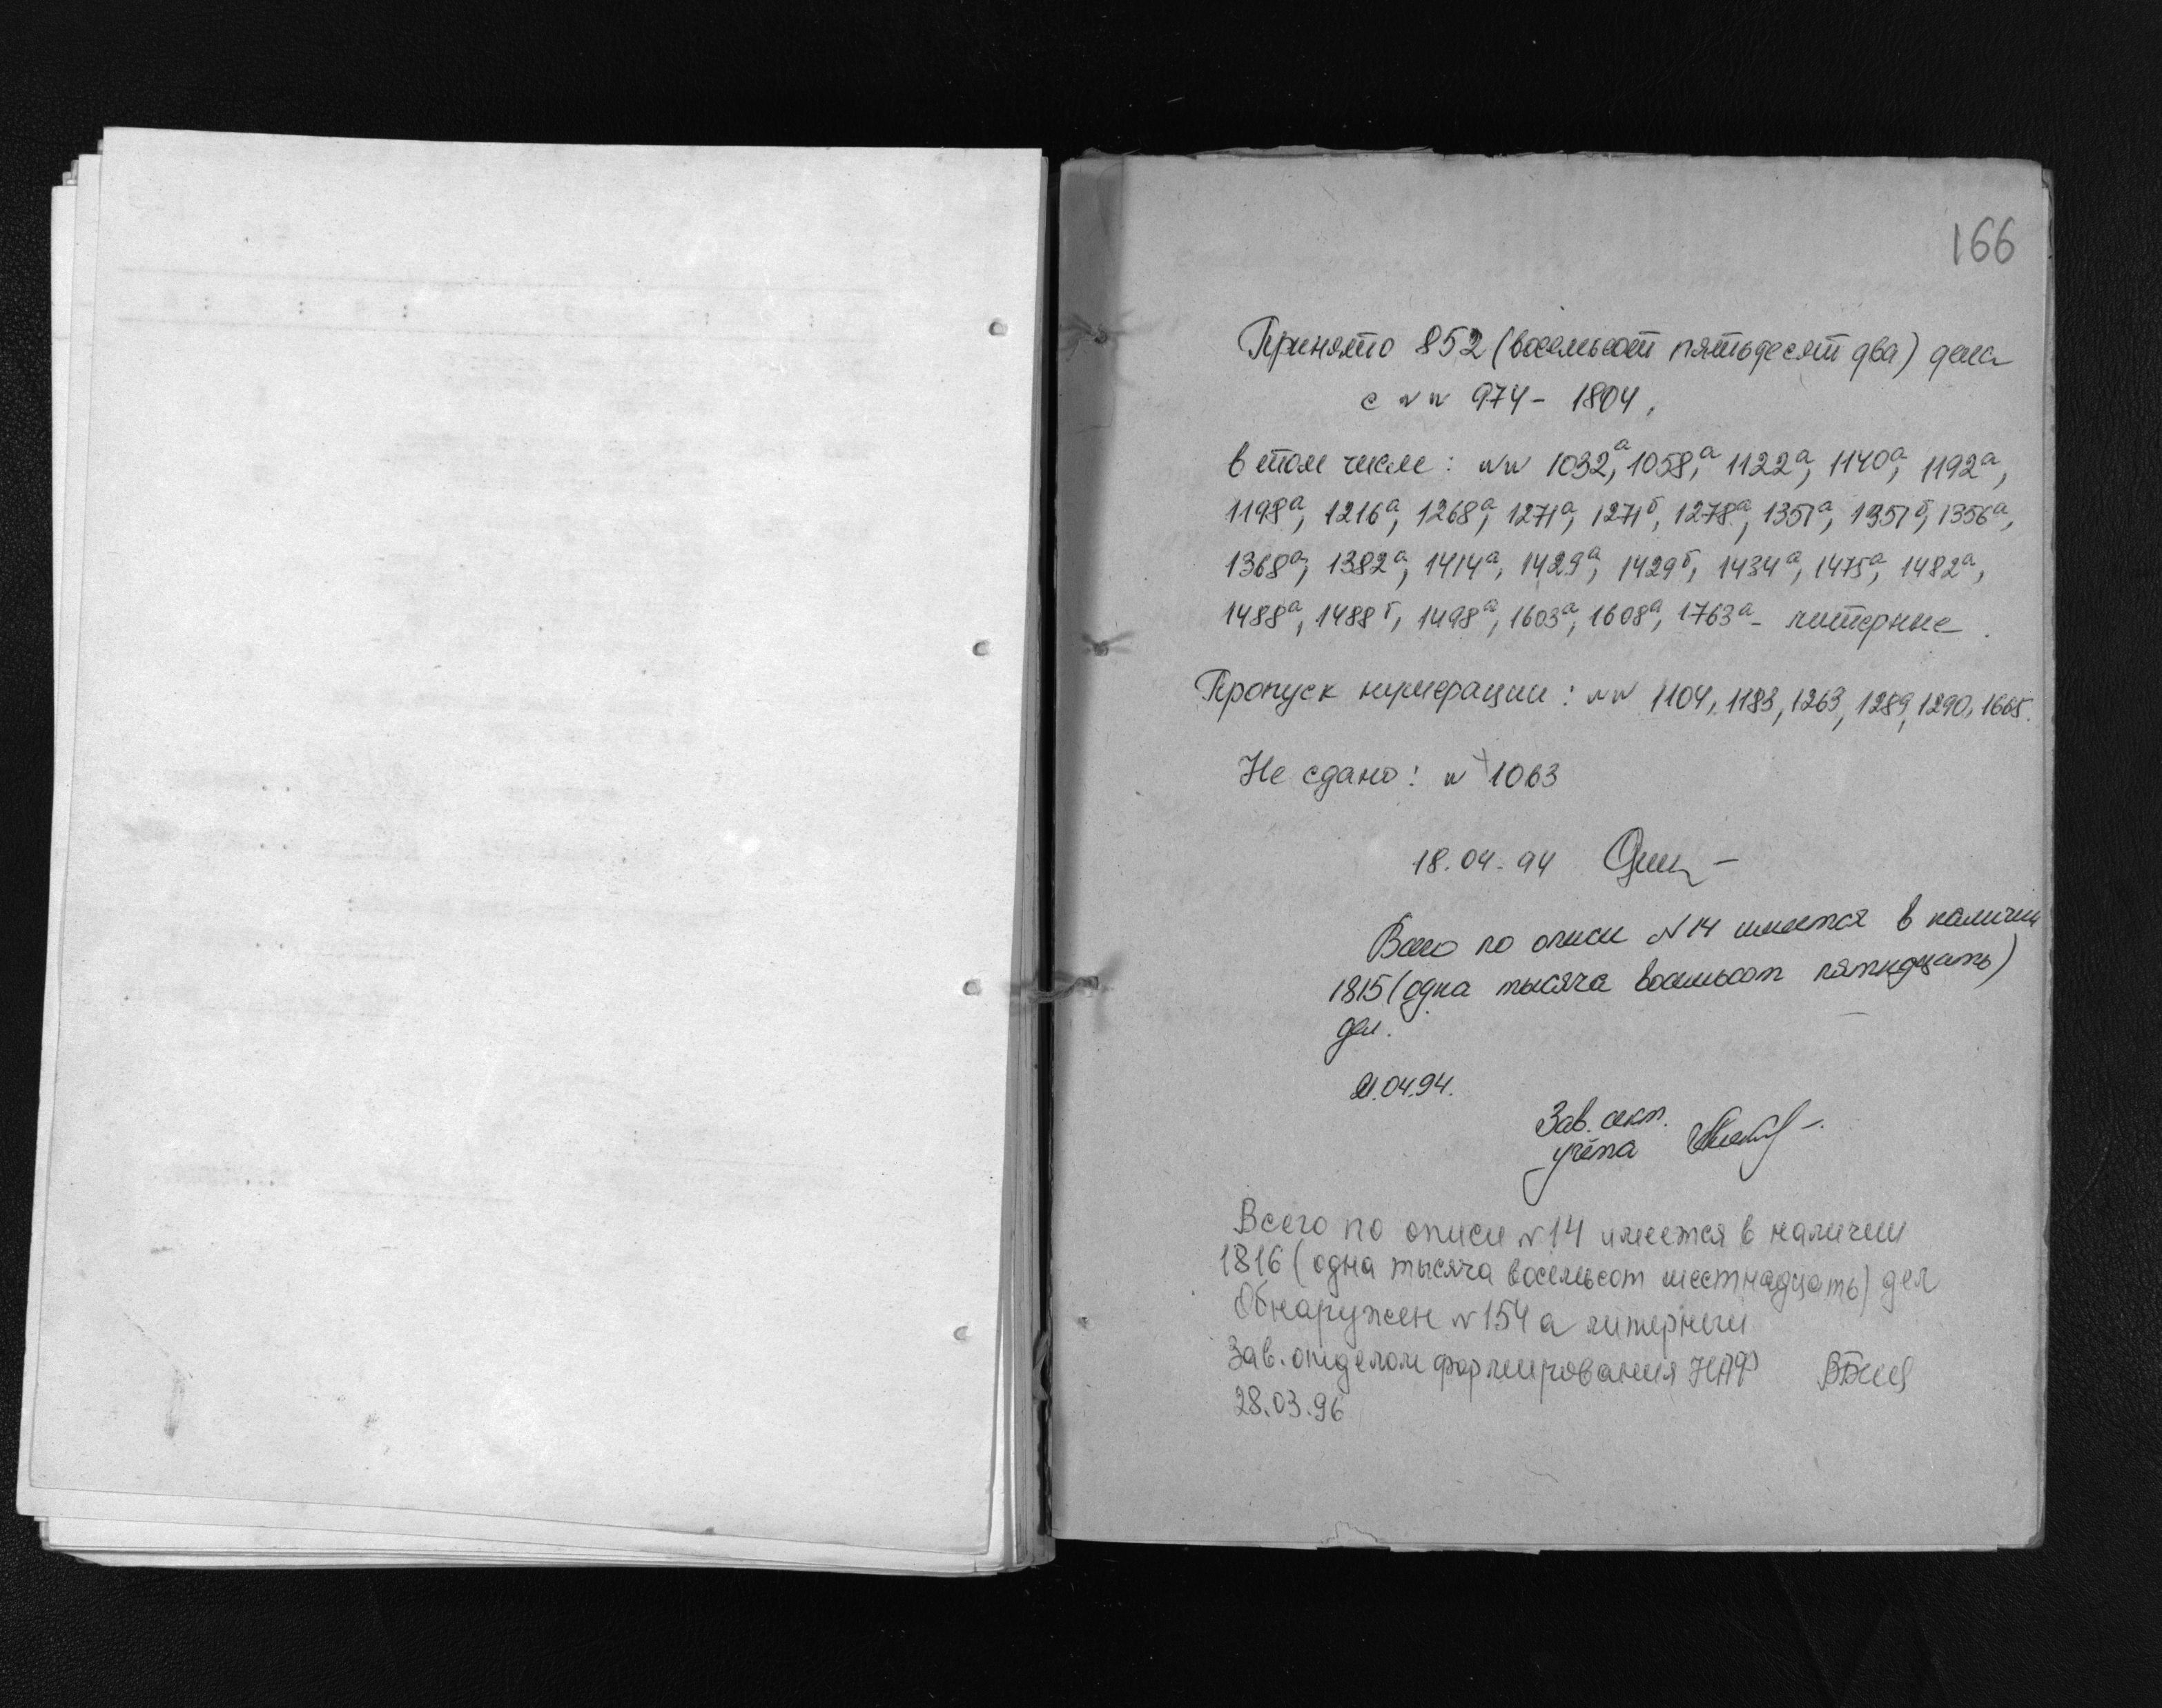 166
Принято 852 (восемьсот пятьдесят два) дела
с №№ 974 - 1804,
в том числе: №№ 1032а, 1058а, 1122а, 1140а, 1192а,
1198а, 1216а, 1268а, 1271а, 1271б, 1278а, 1351а, 1351б, 1356а,
1368а, 1382а, 1414а, 1429а, 1429б, 1434а, 1475а, 1482а,
1488а, 1488б, 1498а, 1603а, 1608а, 1763а - литерные.
Пропуск нумерации: №№ 1104, 1183, 1263, 1289, 1290, 1665.
Не сдано: № 1063
18.04.94
Всего по описи № 14 имеется в наличии
1815 (одна тысяча восемьсот пятнадцать)
дел.
21.04.94.
Зав. сект.
учёта
Всего по описи № 14 имеется в наличии
1816 (одна тысяча восемьсот шестнадцать) дел
Обнаружен № 154 а литерный
Зав. отделом формирования НАФ
28.03.96